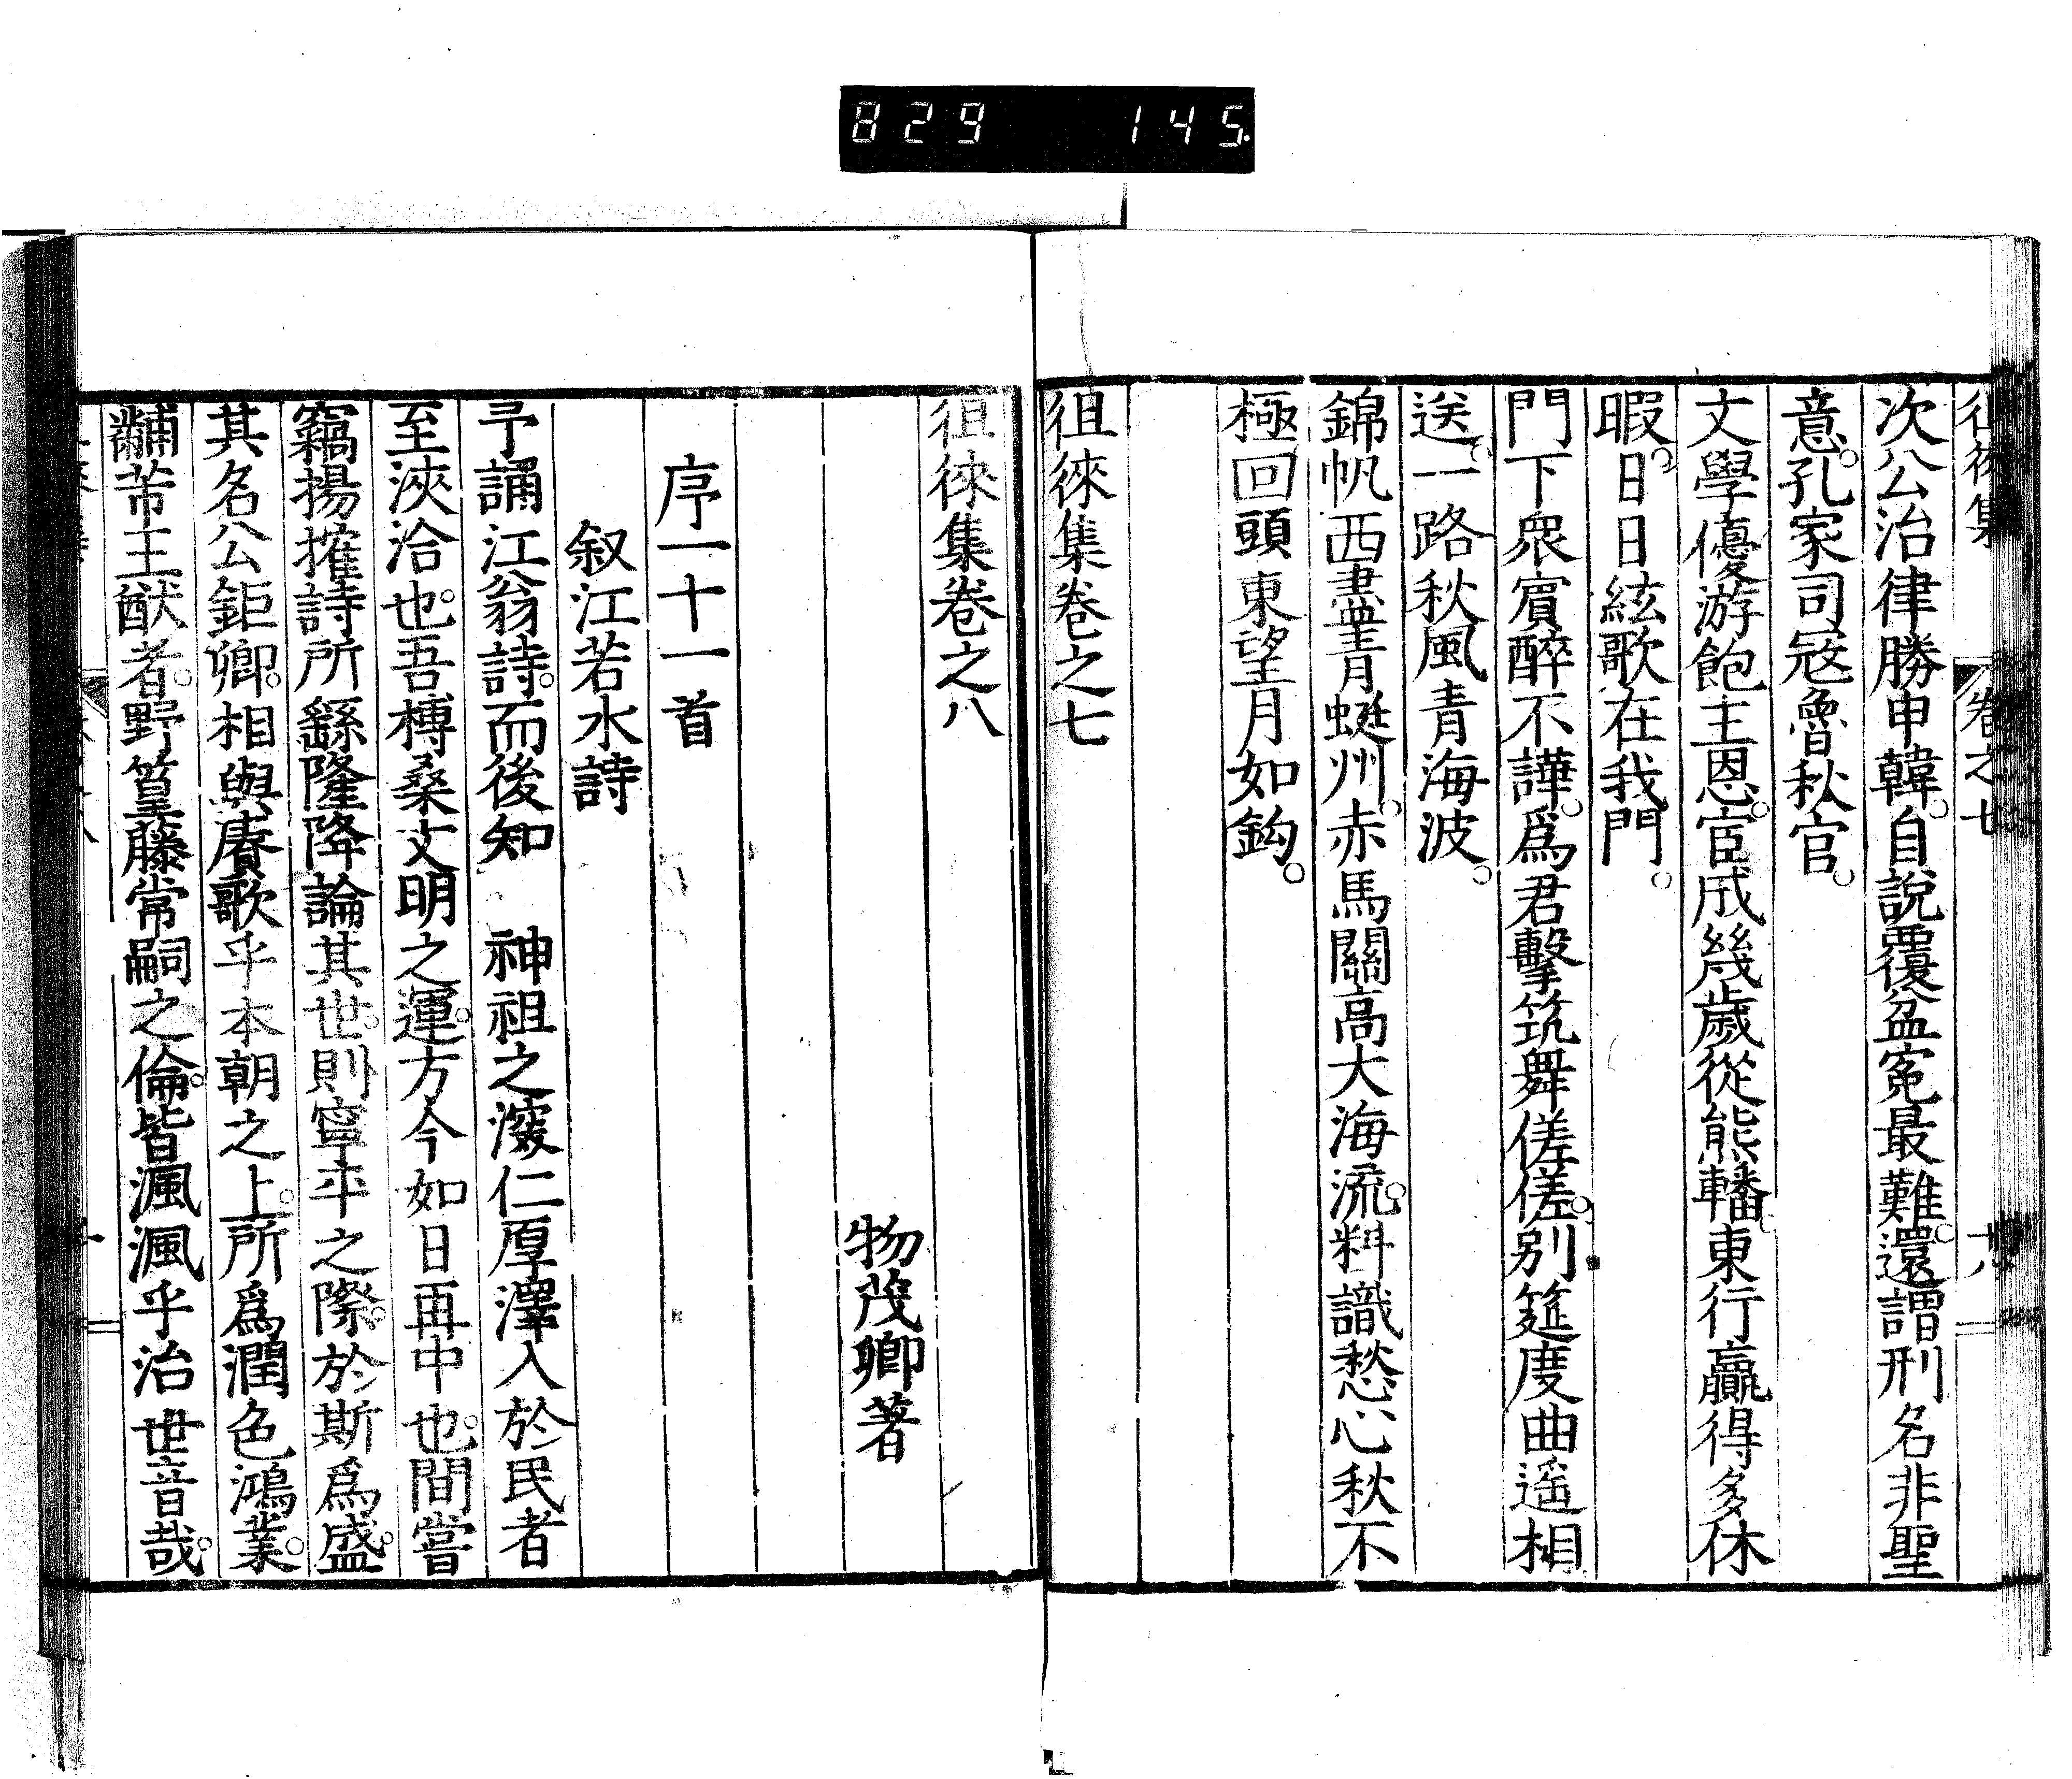 829 145.
徂徠集 卷之七 十八
次公治律勝申韓。自說覆盆寃最難。還謂刑名非聖
意。孔家司寇魯秋官。
文學優游飽主恩。宦成幾歲從熊轓。東行贏得多休
暇。日日絃歌在我門。
門下衆賓醉不譁。爲君擊筑舞傞傞。別筵度曲遙相
送。一路秋風青海波。
錦帆西盡青蜓州。赤馬關高大海流。料識愁心秋不
極。回頭東望月如鈎。
徂徠集卷之七
徂徠集卷之八
物茂卿著
序一十一首
叙江若水詩
予誦江翁詩。而後知 神祖之深仁厚澤入於民者
至浹洽也。吾榑桑文明之運。方今如日再中也。間嘗
竊揚搉詩所繇隆降論其世。則寧平之際。於斯爲盛。
其名公鉅卿。相與賡歌乎本朝之上。所爲潤色鴻業。
黼芾王猷者。野篁藤常嗣之倫。皆渢渢乎治世音哉。